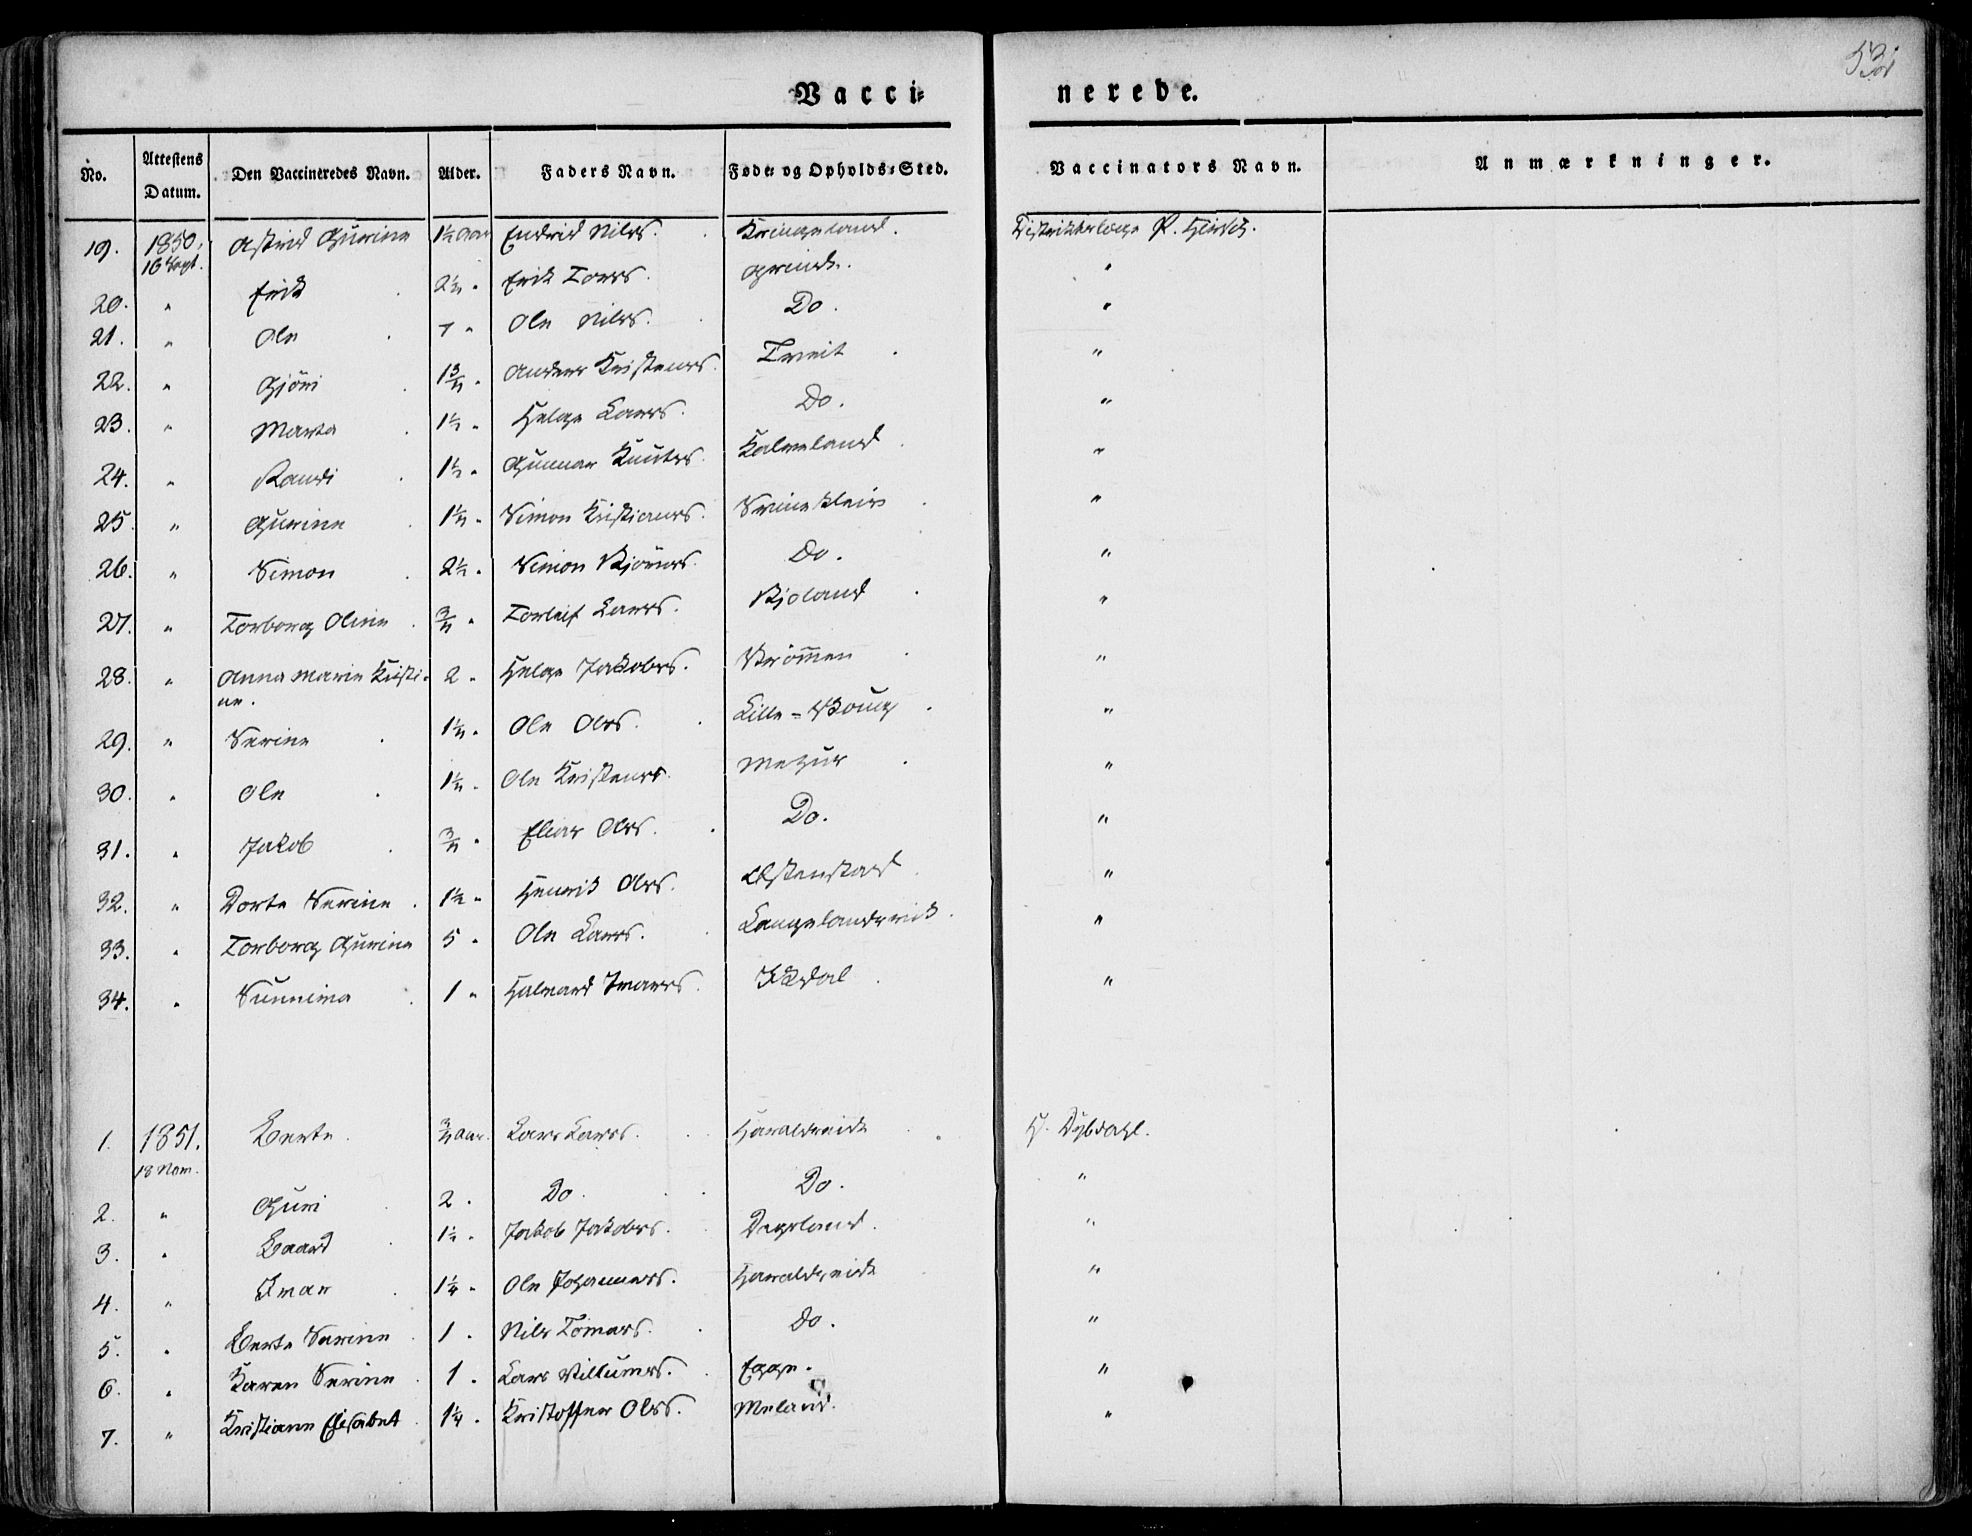 531
Vacci-
nerede.
No.
Attestens Datum.
Den Vaccineredes Navn.
Alder.
Faders Navn.
Føde- og Opholds-Sted.
Vaccinators Navn.
Anmærkninger.
19. 1850. 16 Sept. Astrid Gurine 1½ Aar Endrid Nilss. Kringeland. Distriktslæge P.
20. " Erik 2½ " Erik Torss. Grinde. "
21. " Ole 7 " Ole Nilss. Do. "
22. " Gjöri 1¾ " Anders Kristenss. Tveit "
23. " Marta 1½ " Helge Larss. Do. "
24. " Randi 1½ " Gunnar Knutss. Kalveland "
25. " Gurine 1¼ " Simon Kristianss. "
26. " Simon 2½ " Simon Bjönss. Do. "
27. " Torborg Oline ¾ " Torleif Larss. Bjoland "
28. " Anna Marie Kristine. 2 " Helge Jakobss. Strömmen "
29. " Serine 1¼ " Ole Olss. Lille- "
30. " Ole 1¼ " Ole Kristenss. "
31. " Jakob ¾ " Elias Olss. Do. "
32. " Dorte Serine 1½ " Henrik Olss. "
33. " Torborg Gurine 5 " Ole Larss. Langelandsvik "
34. " Sunniva 1 " Halvard Ivarss. "
1. 1851. 18 Nov. Berte ¾ Aar. Lars Larss. Haraldseide H. Dybdahl.
2. " Guri 2 " Do. Do. "
3. " Baard 1½ " Jakob Jakobss. Dagsland. "
4. " Ivar 1¼ " Ole Johanness. Haraldseide "
5. " Berte Serine 1 " Nils Tomass. Do. "
6. " Karen Serine 1 " Lars Villumss. Egge. "
7. " Kristiane Elisabet 1¼ " Kristoffer Olss. Meland. "